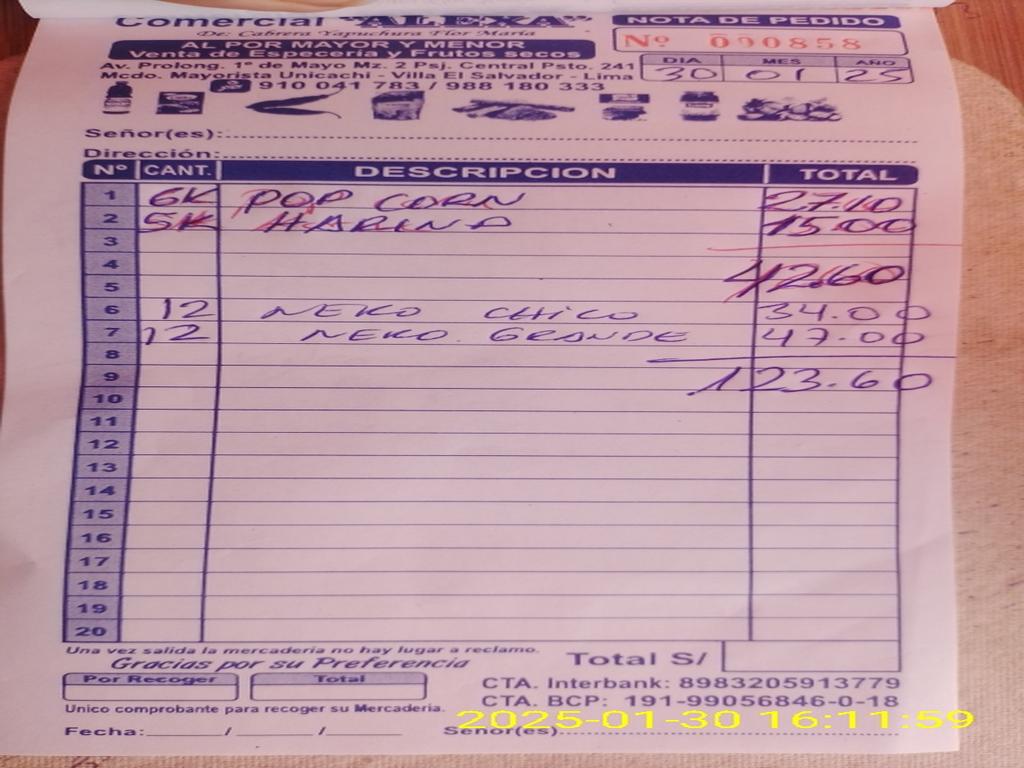 Comercial "ALEXA"
De: Cabrera Yapuchura Flor María
AL POR MAYOR Y MENOR
Venta de Especería y Frutos secos
Av. Prolong. 1º de Mayo Mz. 2 Psj. Central Psto. 241
Mcdo. Mayorista Unicachi - Villa El Salvador - Lima
910 041 783 / 988 180 333
NOTA DE PEDIDO
Nº 090858
DIA MES AÑO
30 01 25
Señor(es):
Dirección:
Nº CANT. DESCRIPCION TOTAL
1 6K POP CORN 27.10
2 5K HARINA 15.00
3
4 42.60
5
6 12 NEKO CHICO 34.00
7 12 NEKO GRANDE 47.00
8
9 123.60
10
11
12
13
14
15
16
17
18
19
20
Una vez salida la mercadería no hay lugar a reclamo.
Gracias por su Preferencia
Total S/
Por Recoger Total
CTA. Interbank: 8983205913779
CTA. BCP: 191-99056846-0-18
Unico comprobante para recoger su Mercadería.
2025-01-30 16:11:59
Fecha: / / Señor(es)